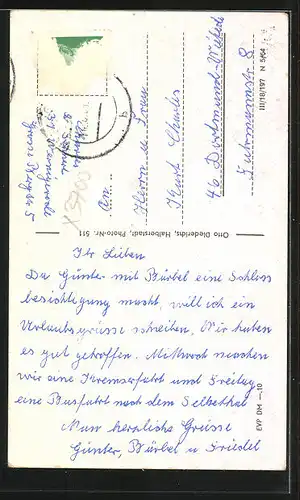 Ihr Lieben
Da Günter mit Bärbel eine Schloss
besichtigung macht, will ich ein
Urlaubsgrüsse schreiben, Wir haben
es gut getroffen. Mittwoch machen
wir eine Kremserfahrt und Freitag
eine Busfahrt nach dem Selkethal
Nun herzliche Grüsse
Günter, Bärbel u Friedel
An...
Herrn u Frau
Kurt
46 Dortmund-
Otto Diederichs, Halberstadt, Photo-Nr. 511
III/18/197 N 5/64
EVP DM —.10